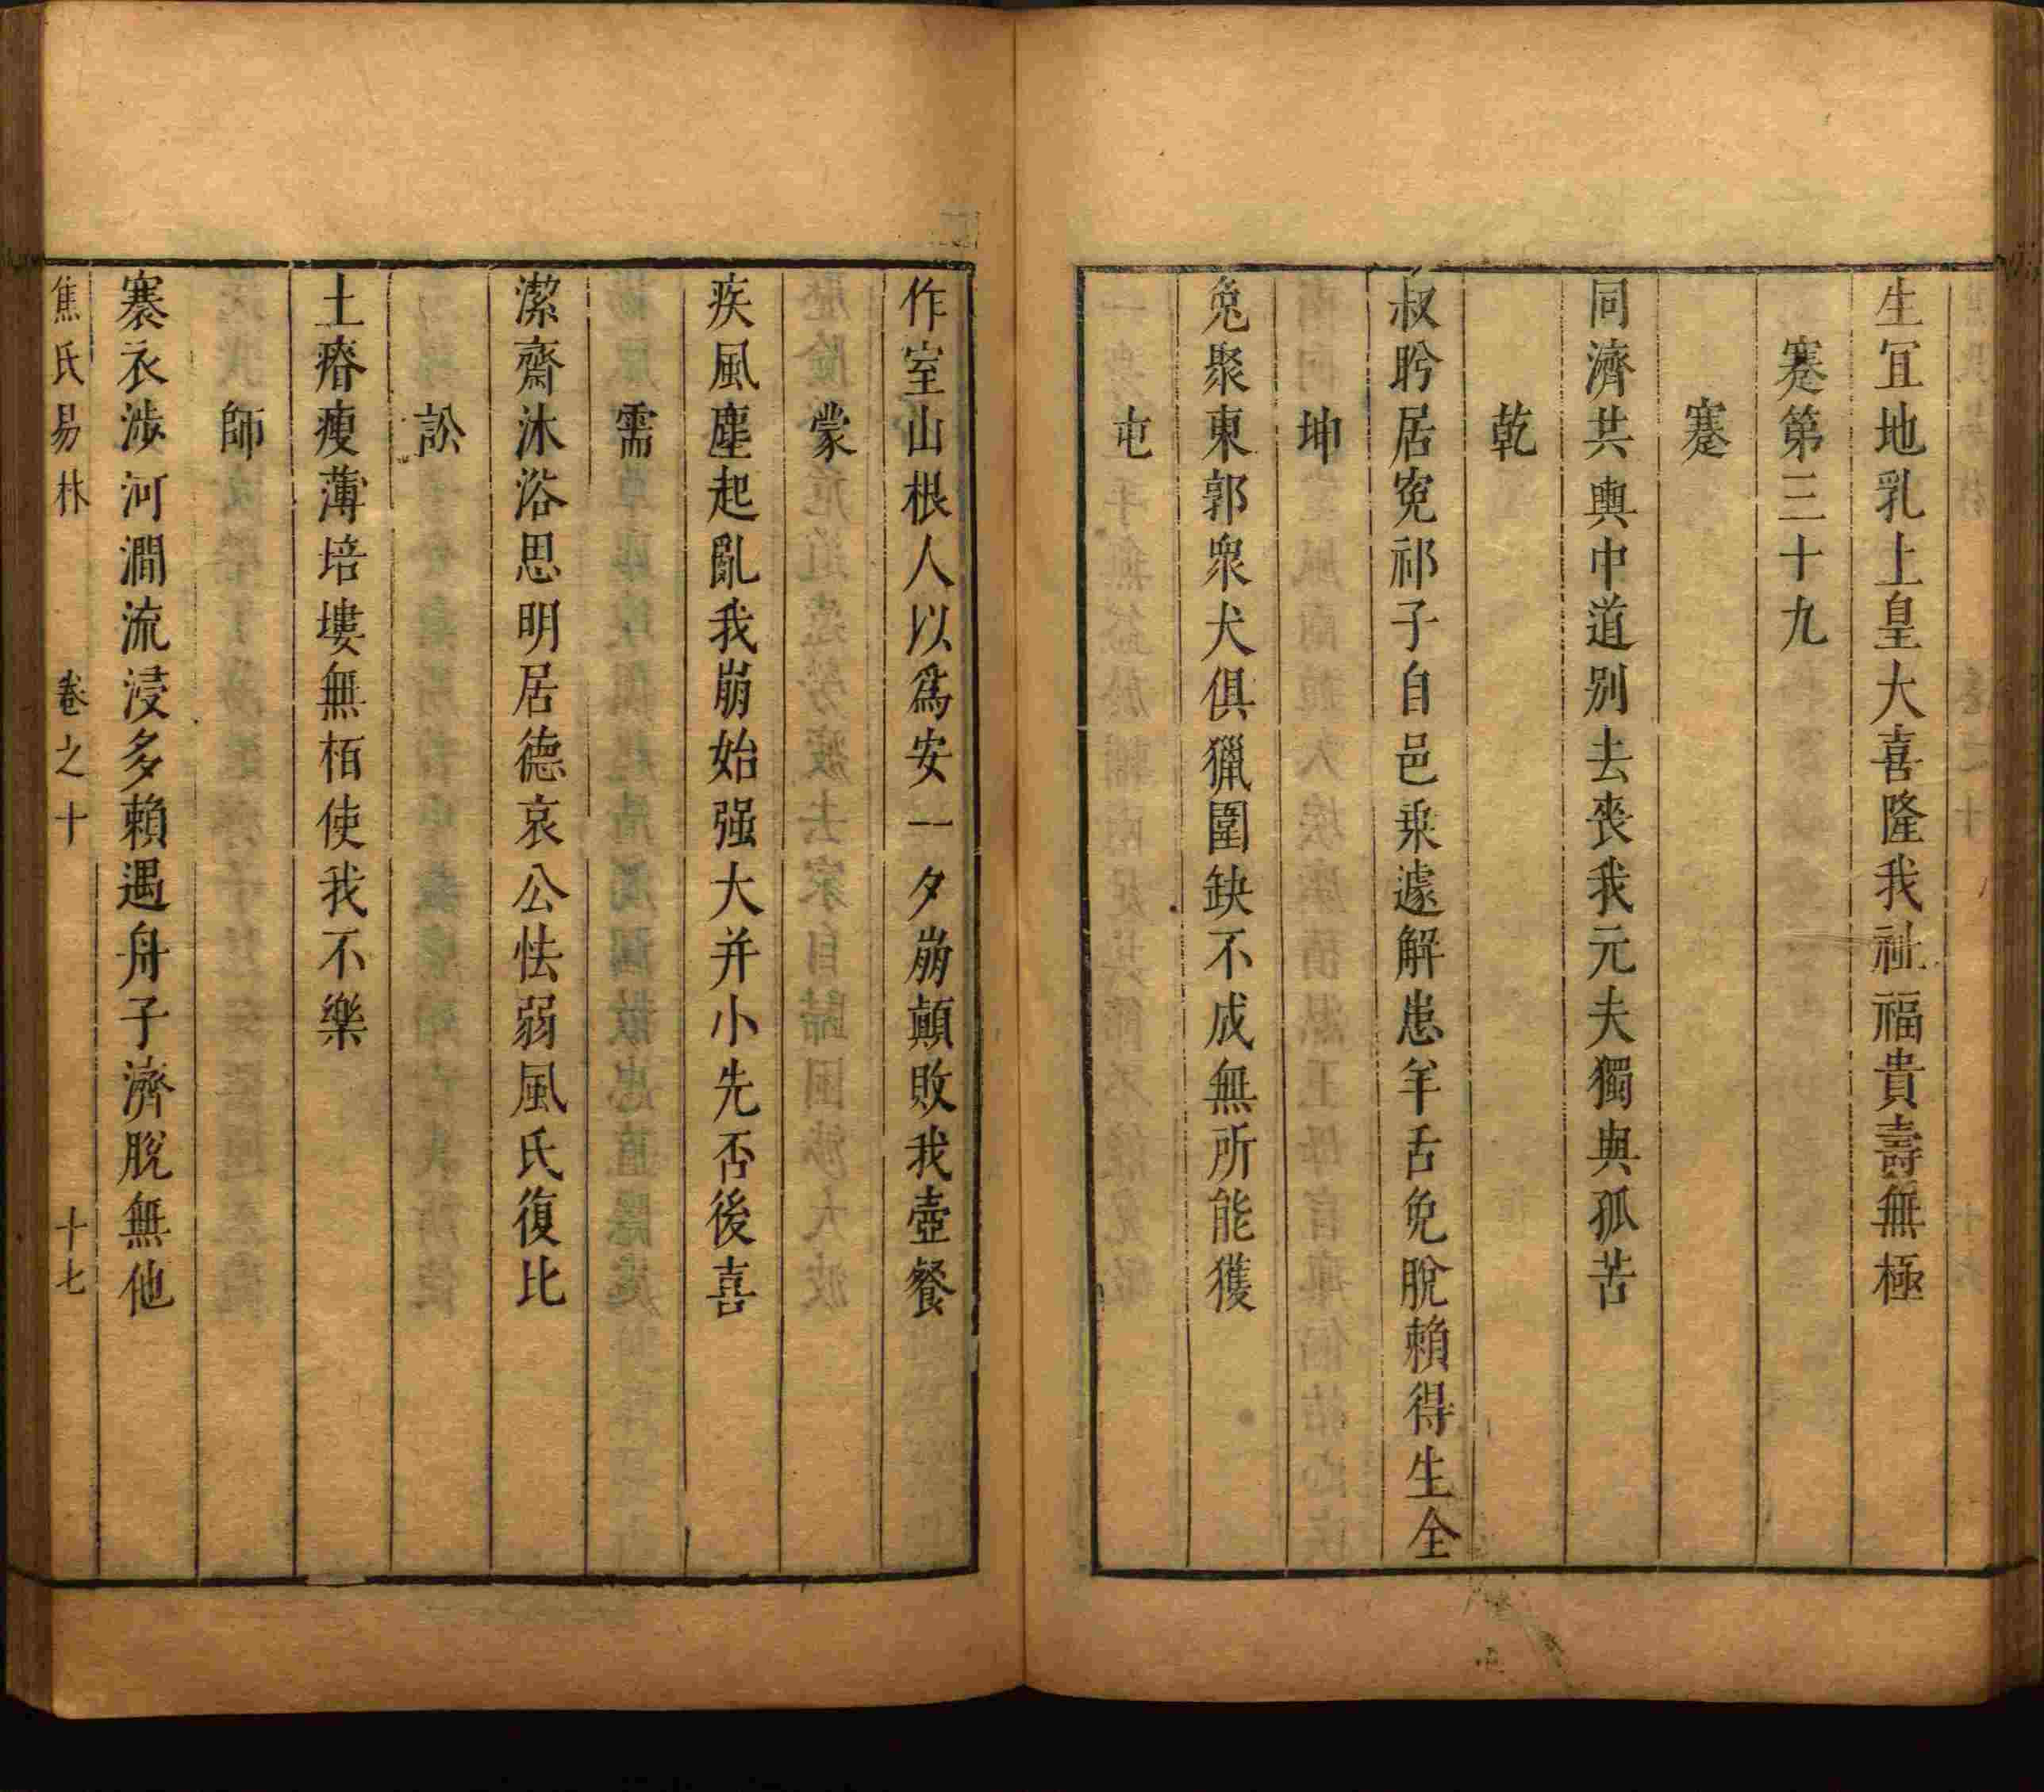 生宜地乳上皇大喜隆我祉福貴壽無極
蹇第三十九
蹇
同濟共輿中道別去喪我元夫獨與孤苦
乾
叔肹居寃祁子自邑乘遽解患羊舌免脫賴得生全
坤
兔聚東郭衆犬俱獵圍缺不成無所能獲
屯
作室山根人以爲安一夕崩顛敗我壺餐
蒙
疾風塵起亂我崩始强大并小先否後喜
需
潔齋沐浴思明居德哀公怯弱風氏復比
訟
土瘠瘦薄培塿無栢使我不樂
師
褰衣涉河澗流浸多賴遇舟子濟脫無他
焦氏易林 卷之十 十七